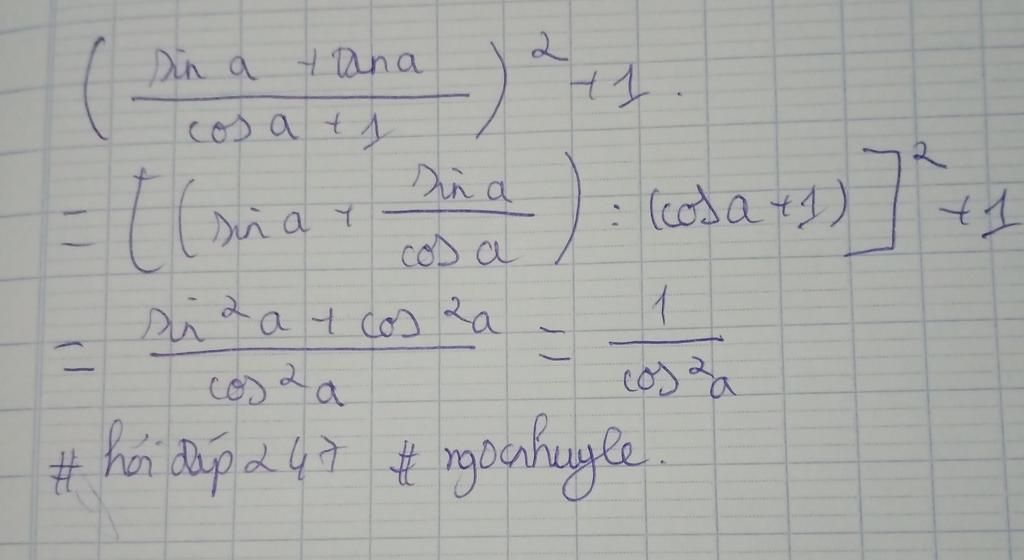 ( (sin a + tan a) / (cos a + 1) )² + 1.
= [ ( sin a + sin a / cos a ) : (cos a + 1) ]² + 1
= (sin²a + cos²a) / cos²a = 1 / cos²a
# hỏi đáp 247 # ngocnhuyle.